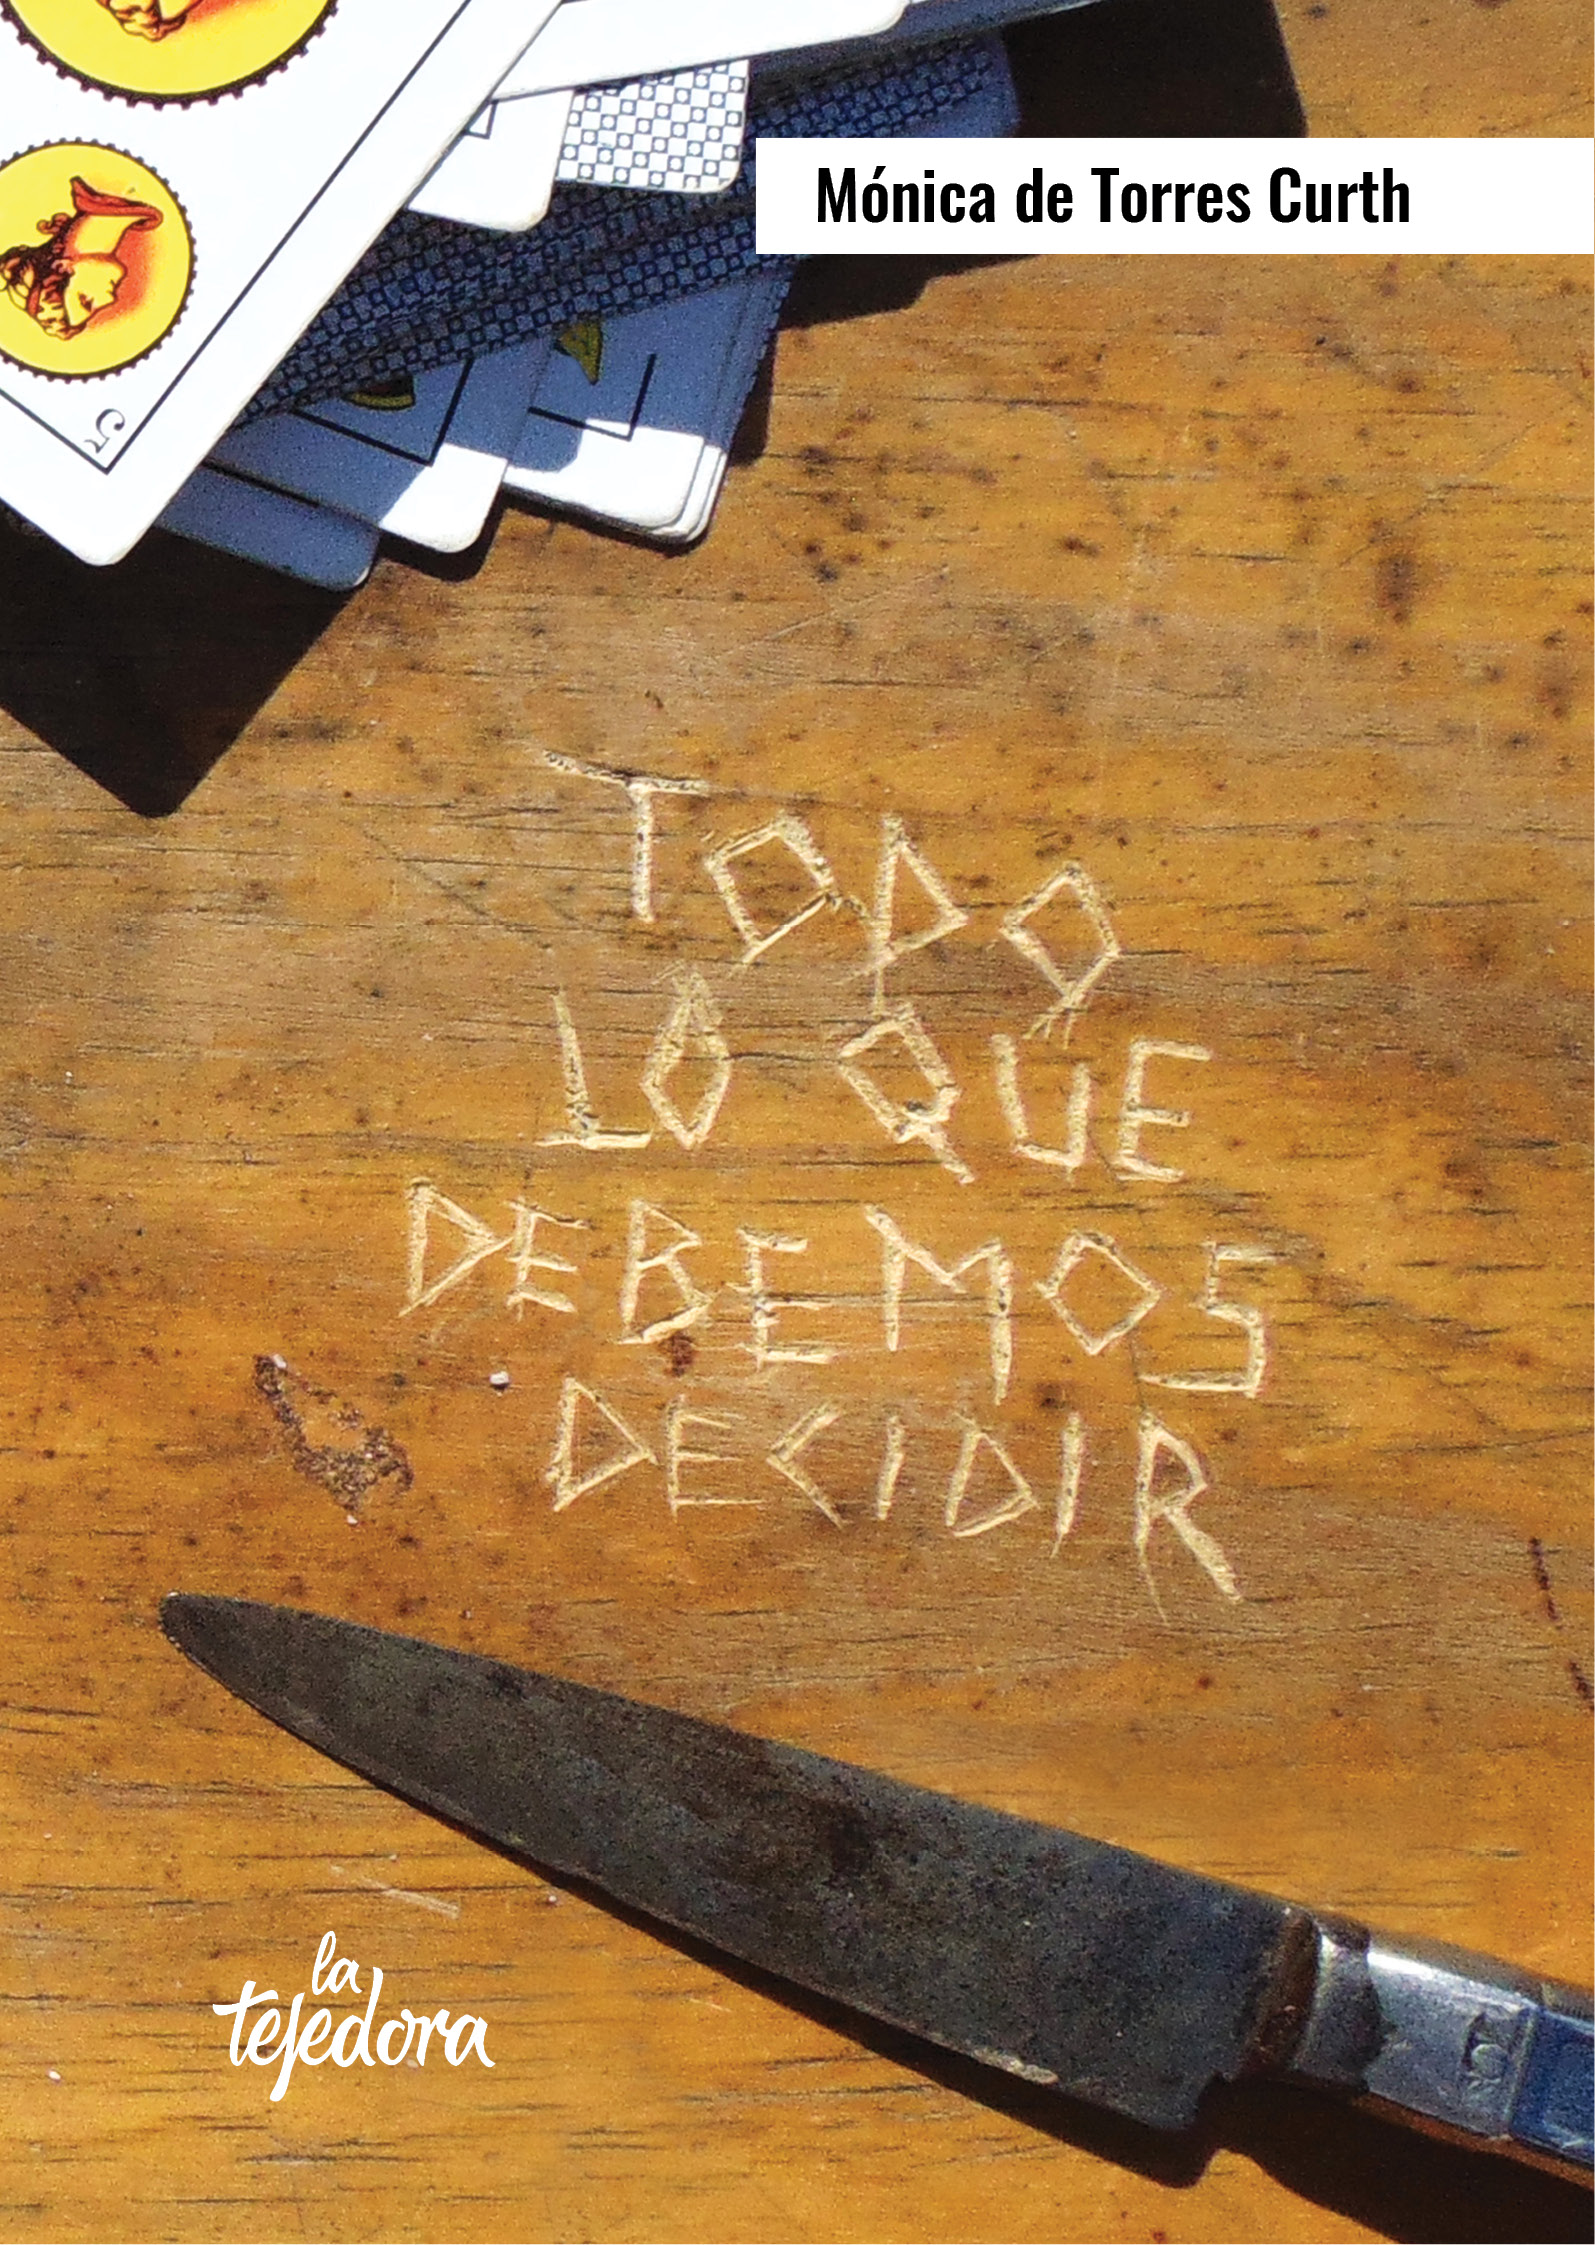 5
Mónica de Torres Curth
TODO
LO QUE
DEBEMOS
DECIDIR
la
tejedora